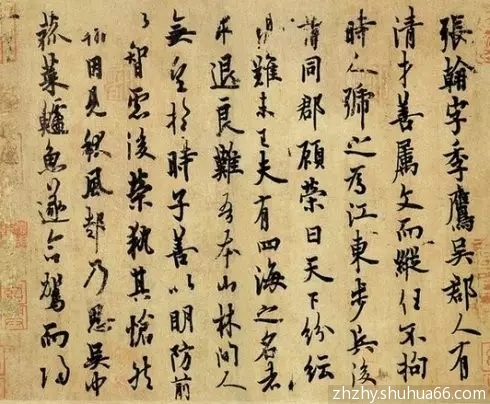 張翰字季鷹吳郡人有
清才善屬文而縱任不拘
時人號之為江東步兵後
謂同郡顧榮曰天下紛紜
禍難未已夫有四海之名者
求退良難吾本山林間人
無望於時子善以明防前
以智慮後榮執其愴然
翰因見秋風起乃思吳中
菰菜鱸魚遂命駕而歸
zhzhy.shuhua66.com